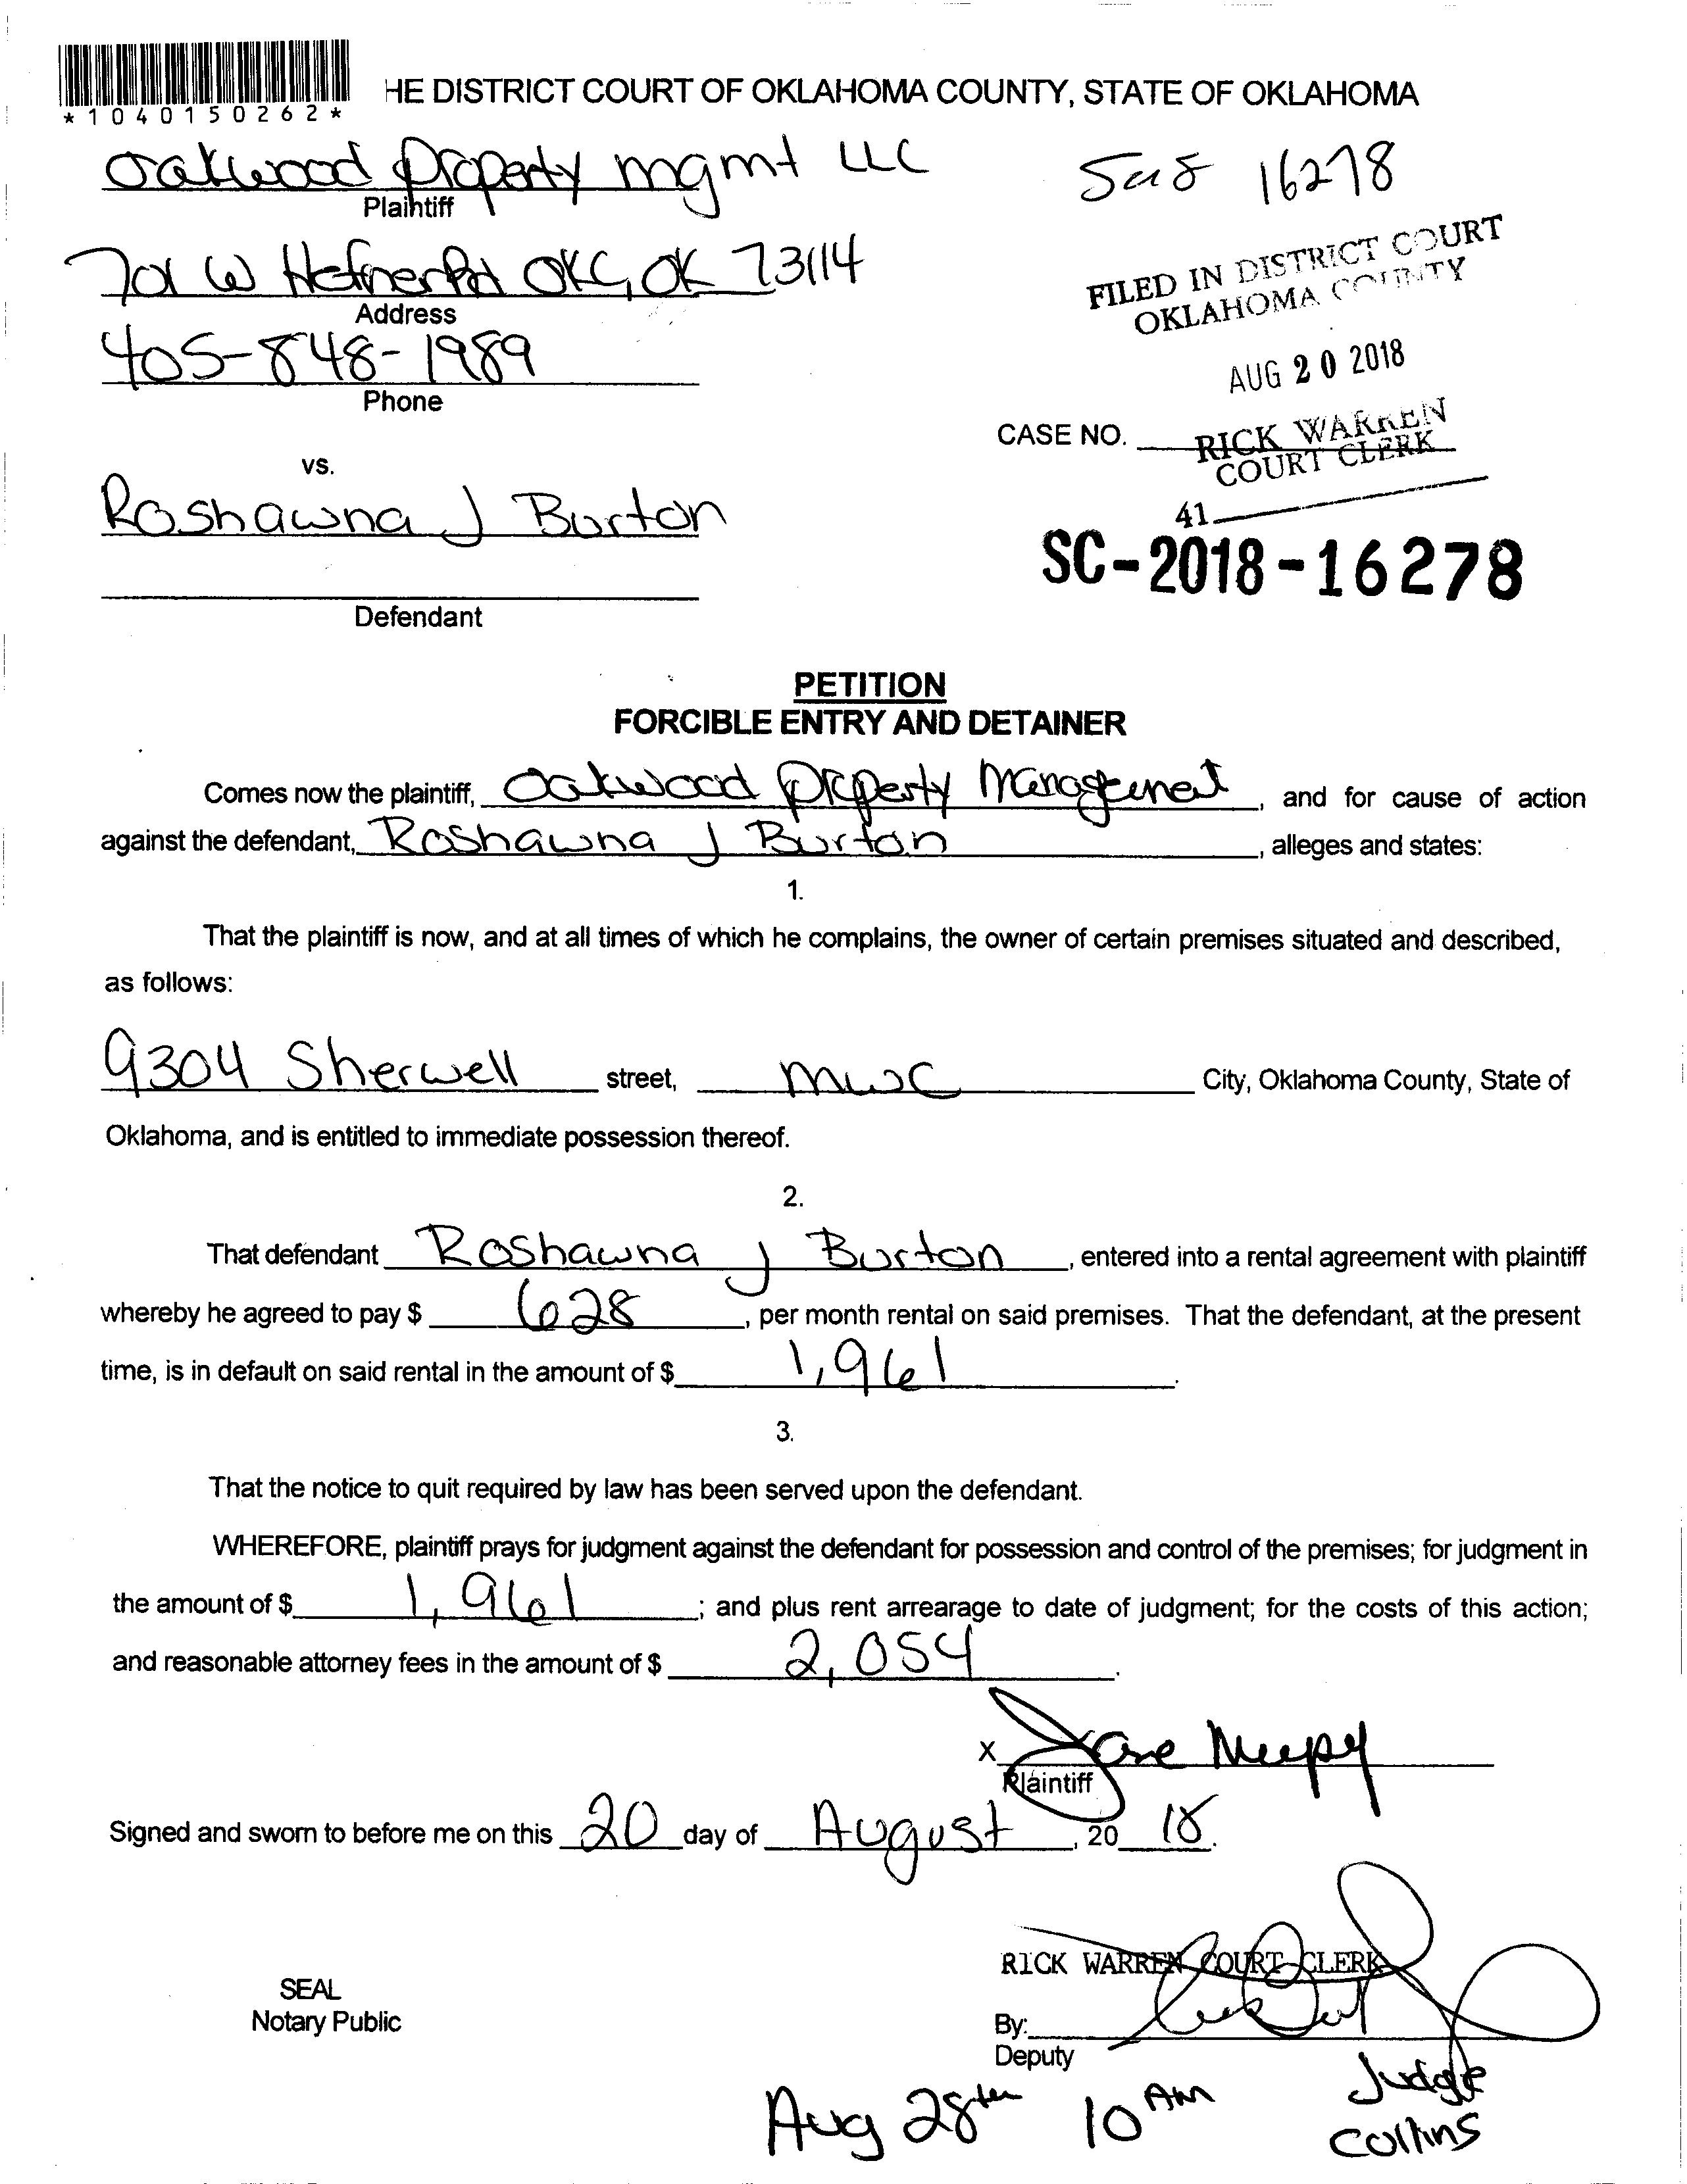 *1040150262*
HE DISTRICT COURT OF OKLAHOMA COUNTY, STATE OF OKLAHOMA
Oakwood Property mgmt LLC
Plaintiff
16278
701 W Hefner Rd OKC, OK 73114
Address
FILED IN DISTRICT COURT
OKLAHOMA COUNTY
405-848-1989
Phone
AUG 20 2018
CASE NO.
RICK WARREN
COURT CLERK
vs.
Roshawna J Burton
41
SC-2018-16278
Defendant
PETITION
FORCIBLE ENTRY AND DETAINER
Comes now the plaintiff, Oakwood Property Management, and for cause of action
against the defendant, Roshawna J Burton, alleges and states:
1.
That the plaintiff is now, and at all times of which he complains, the owner of certain premises situated and described,
as follows:
9304 Sherwell street, mwc City, Oklahoma County, State of
Oklahoma, and is entitled to immediate possession thereof.
2.
That defendant Roshawna J Burton, entered into a rental agreement with plaintiff
whereby he agreed to pay $ 628, per month rental on said premises. That the defendant, at the present
time, is in default on said rental in the amount of $ 1,961.
3.
That the notice to quit required by law has been served upon the defendant.
WHEREFORE, plaintiff prays for judgment against the defendant for possession and control of the premises; for judgment in
the amount of $ 1,961; and plus rent arrearage to date of judgment; for the costs of this action;
and reasonable attorney fees in the amount of $ 2,054.
X
Plaintiff
Signed and sworn to before me on this 20 day of August, 20 18.
RICK WARREN COURT CLERK
SEAL
Notary Public
By:
Deputy
Aug 28th 10 AM Judge
Collins